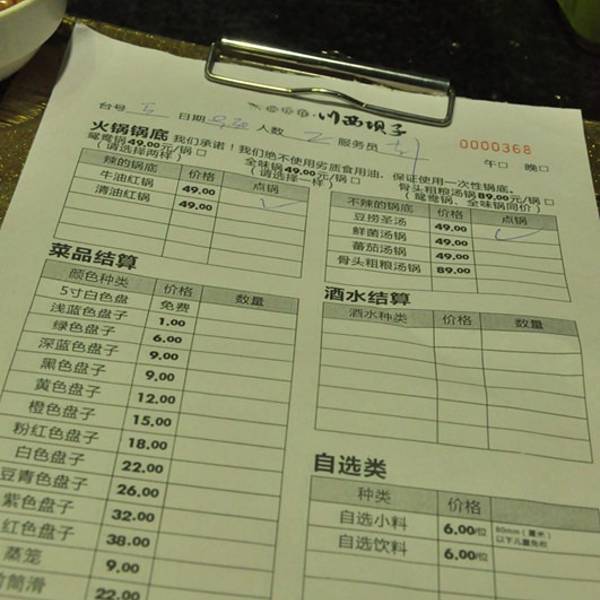 川西坝子
台号 日期 人数 服务员
0000368
午□ 晚□
火锅锅底 我们承诺！我们绝不使用劣质食用油，保证使用一次性锅底。
鸳鸯锅49.00元/锅□ 全味锅49.00元/锅□ 骨头粗粮汤锅89.00元/锅□
（请选择两样） （请选择一样） （鸳鸯锅、全味锅同价）
辣的锅底 价格 点锅
牛油红锅 49.00
清油红锅 49.00
不辣的锅底 价格 点锅
豆捞圣汤 49.00
鲜菌汤锅 49.00
蕃茄汤锅 49.00
骨头粗粮汤锅 89.00
菜品结算
颜色种类 价格 数量
5寸白色盘 免费
浅蓝色盘子 1.00
绿色盘子 6.00
深蓝色盘子 9.00
黑色盘子 9.00
黄色盘子 12.00
橙色盘子 15.00
粉红色盘子 18.00
白色盘子 22.00
豆青色盘子 26.00
紫色盘子 32.00
红色盘子 38.00
蒸笼 9.00
筒滑 22.00
酒水结算
酒水种类 价格 数量
自选类
种类 价格
自选小料 6.00/位 80mm（厘米）
以下儿童免权
自选饮料 6.00/位